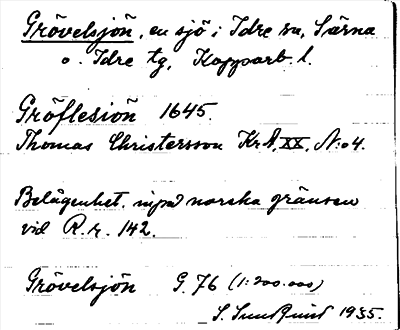 Grövelsjön, en sjö i Idre sn, Särna
o. Idre tg, Kopparb. l.
Gröflesiön 1645.
Thomas Christersson KrA, XX, N:o 4.
Belägenhet. inpå norska gränsen
vid R.r. 142.
Grövelsjön G. 76 (1:200.000)
S. Sundquist 1935.